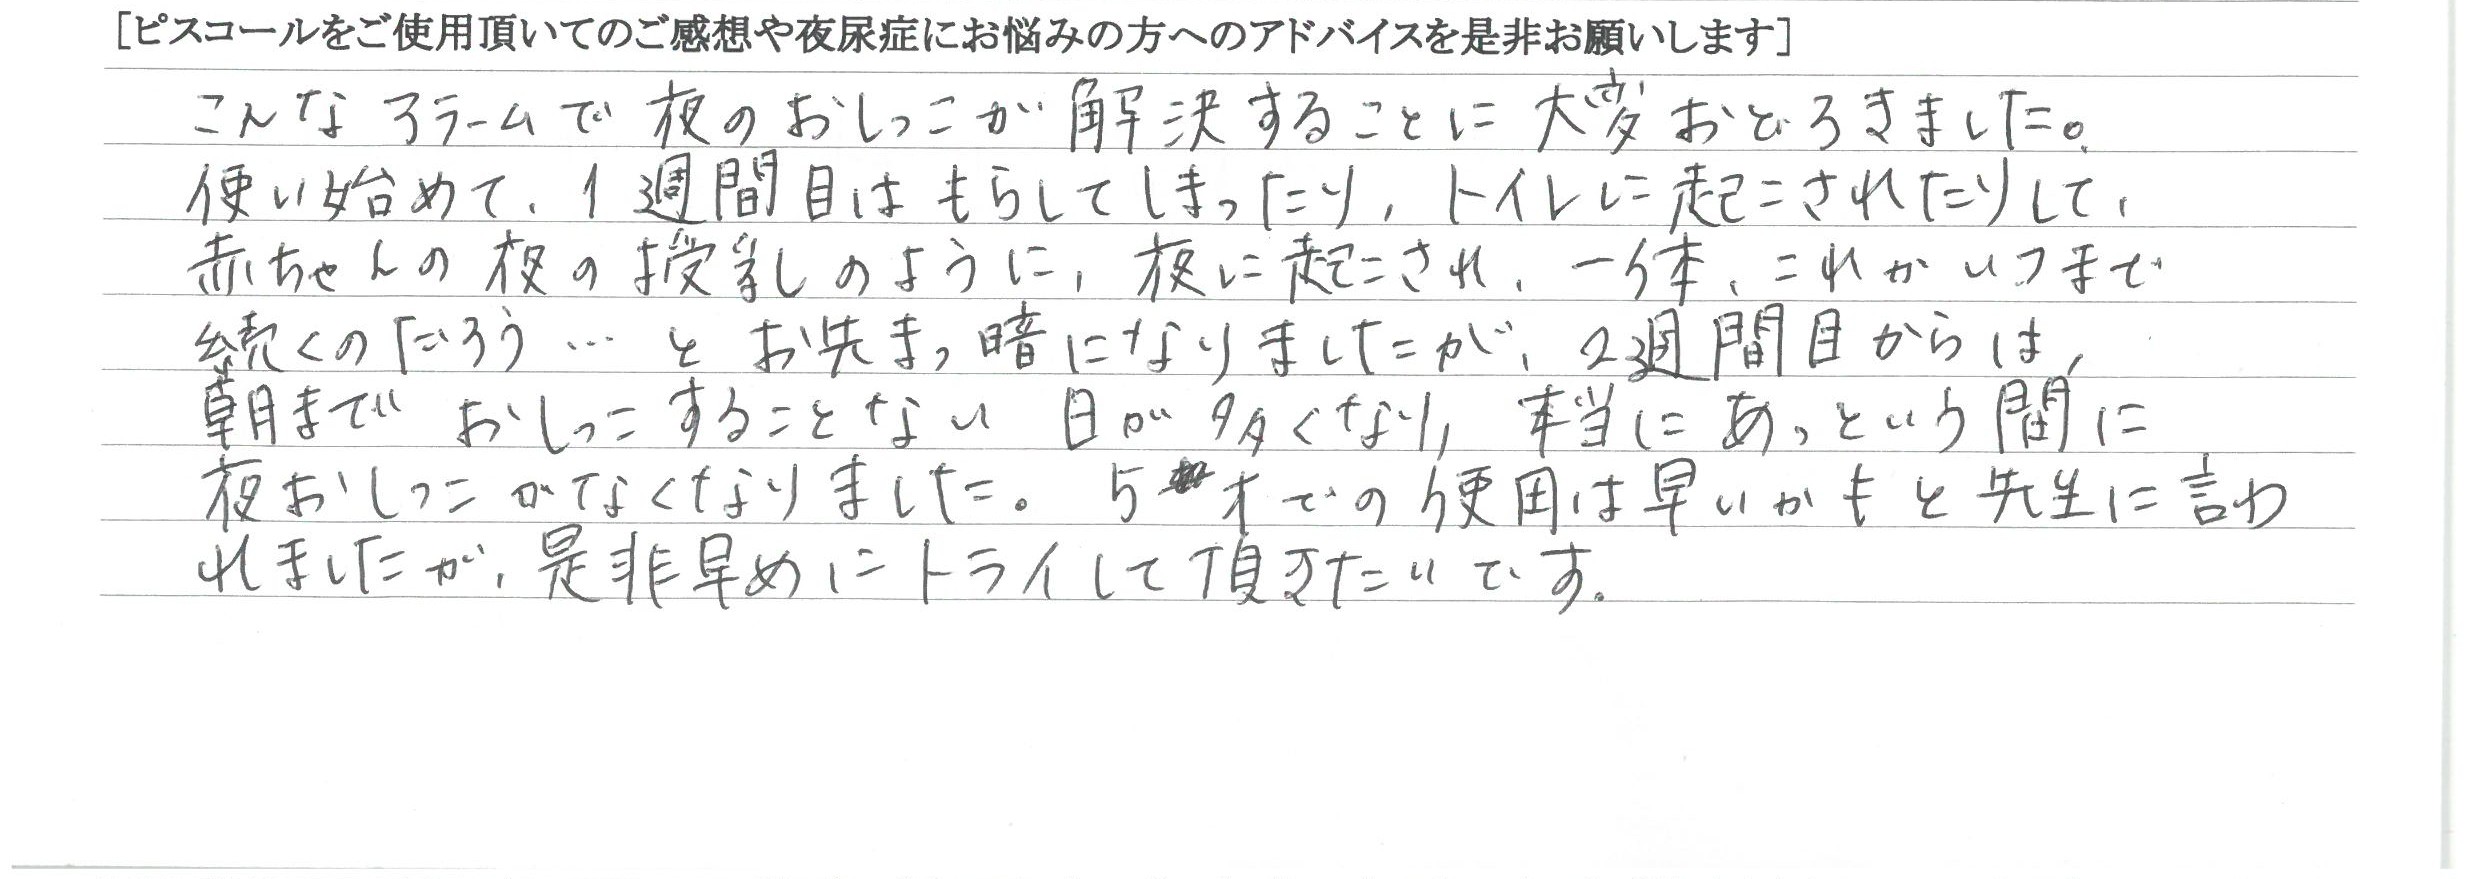 [ピスコールをご使用頂いてのご感想や夜尿症にお悩みの方へのアドバイスを是非お願いします]
こんなアラームで夜のおしっこが解決することに大変おどろきました。
使い始めて、1週間目はもらしてしまったり、トイレに起こされたりして、
赤ちゃんの夜の授乳しのように、夜に起こされ、一体、これがいつまで
続くのだろう…とお先まっ暗になりましたが、2週間目からは、
朝まで おしっこすることない 日が多くなり、本当にあっという間に
夜おしっこがなくなりました。5才での使用は早いかもと先生に言わ
れましたが、是非早めにトライして頂きたいです。